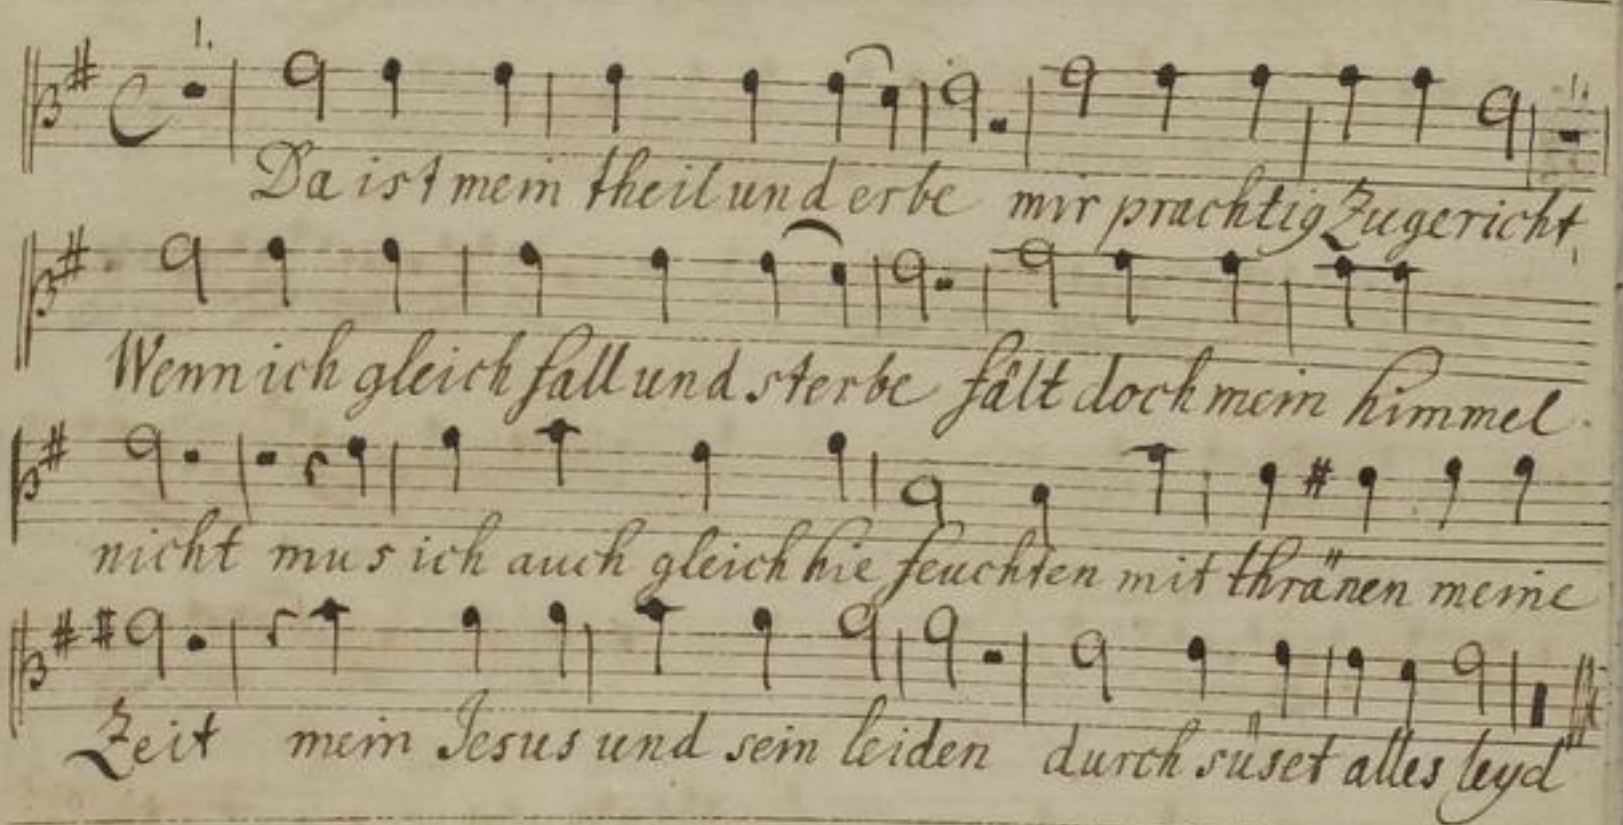 1.
Da ist mein theil und erbe mir prachtig Zugericht
Wenn ich gleich fall und sterbe fält doch mein himmel
nicht mus ich auch gleich hie feuchten mit thränen meine
Zeit mein Jesus und sein leiden durch süset alles leyd